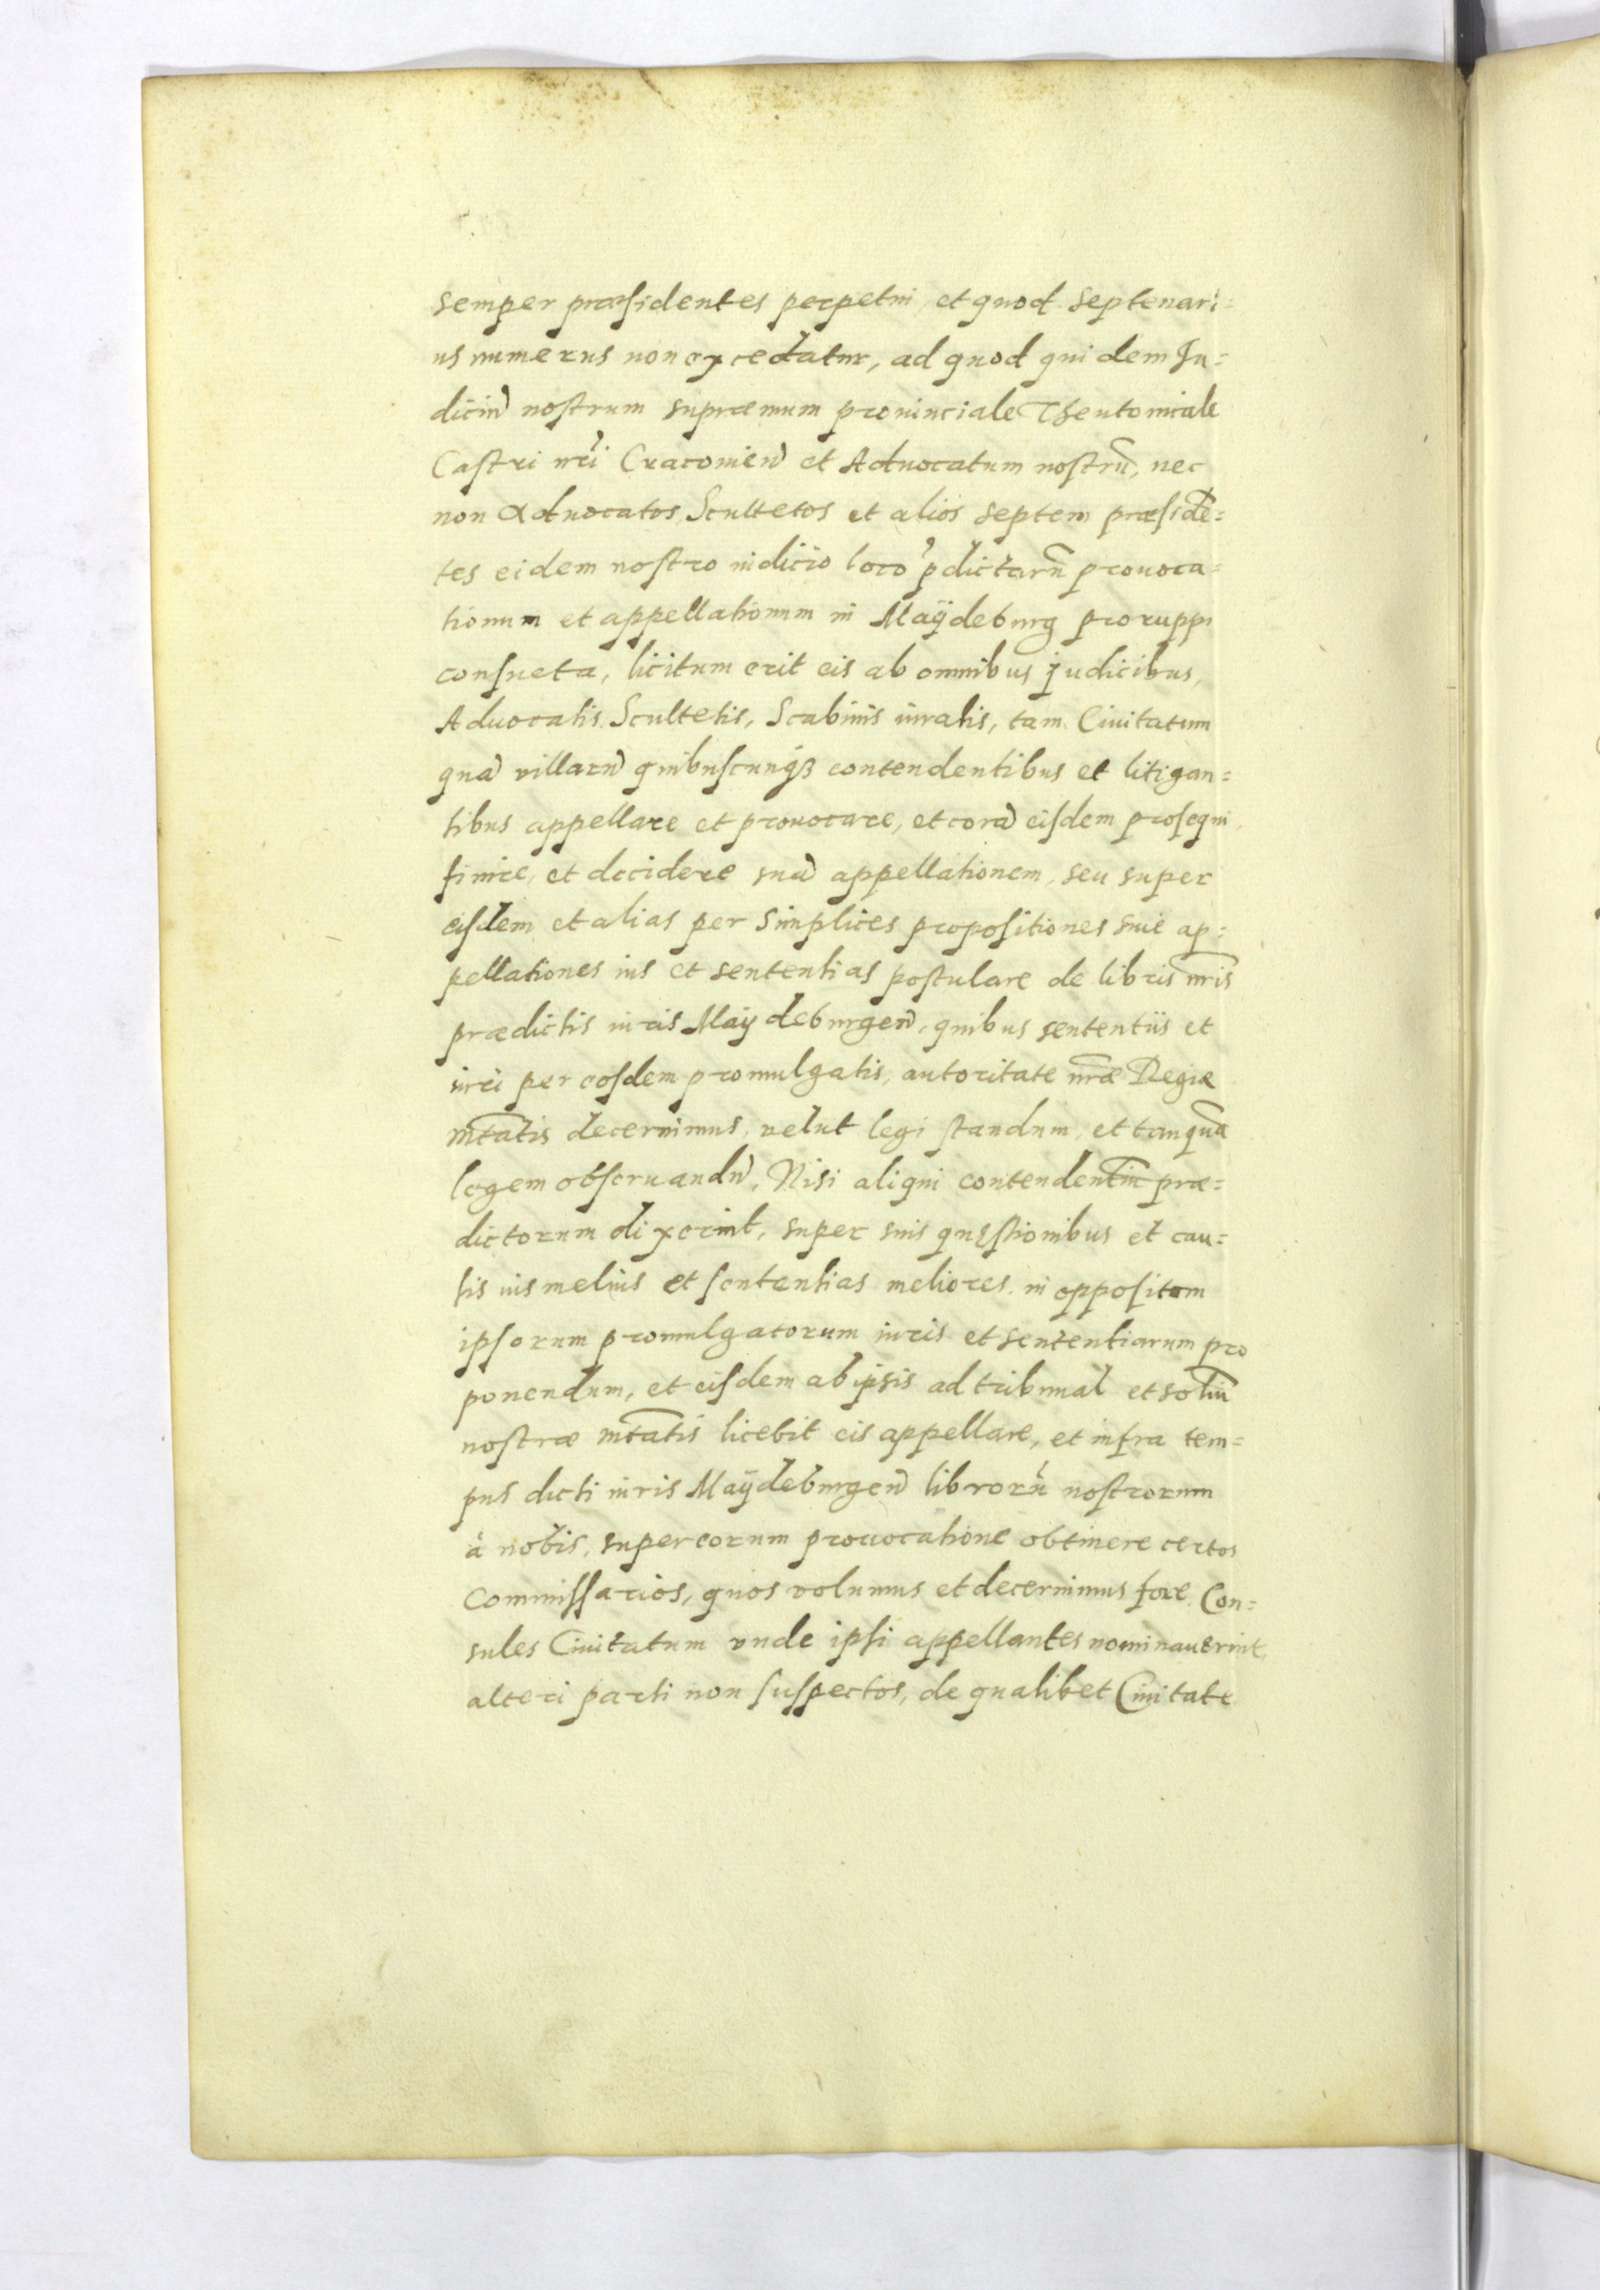 semper præsidentes perpetui, et quod septenari=
us numerus non excedatur, ad quod quidem Iu=
diciũ nostrum supræmum prouinciale Theutonicale
Castri nr̃i Cracouieñ et Aduocatum nostrũ, nec
non Aduocatos, Scultetos et alios septem præsidẽ=
tes eidem nostro iudicio loco p̃dictarũ prouoca=
tionum et appellationum in Maÿdeburg
consueta, licitum erit eis ab omnibus judicibus,
Aduocatis, Scultetis, Scabinis iuratis, tam Ciuitatum
quã villarũ quibuscunqȝ contendentibus et litigan=
tibus appellare et prouocare, et corã eisdem prosequi,
finire, et decidere suã appellationem, seu super
eisdem et alias per simplices propositiones siue ap=
pellationes ius et sententias postulare de libris nr̃is
prædictis iuris Maÿdeburgeñ, quibus sententiis et
iuri per eosdem promulgatis, autoritate nr̃æ Regiæ
mtãtis decernimus, velut legi standum, et tanquã
legem obseruandũ, Nisi aliqui contendentiũ præ=
dictorum dixerint, super suis quęstionibus et cau=
sis ius melius et sententias meliores in oppositum
ipsorum promulgatorum iuris et sententiarum pro
ponendum, et eisdem ab ipsis ad tribunal et soliũ
nostræ mtãtis licebit eis appellare, et infra tem=
pus dicti iuris Maÿdeburgeñ librorũ nostrorum
à nobis, super eorum prouocatione obtinere certos
Commissarios, quos volumus et decernimus fore Con=
sules Ciuitatum vnde ipsi appellantes nominauerint,
alteri parti non suspectos, de qualibet Ciuitate